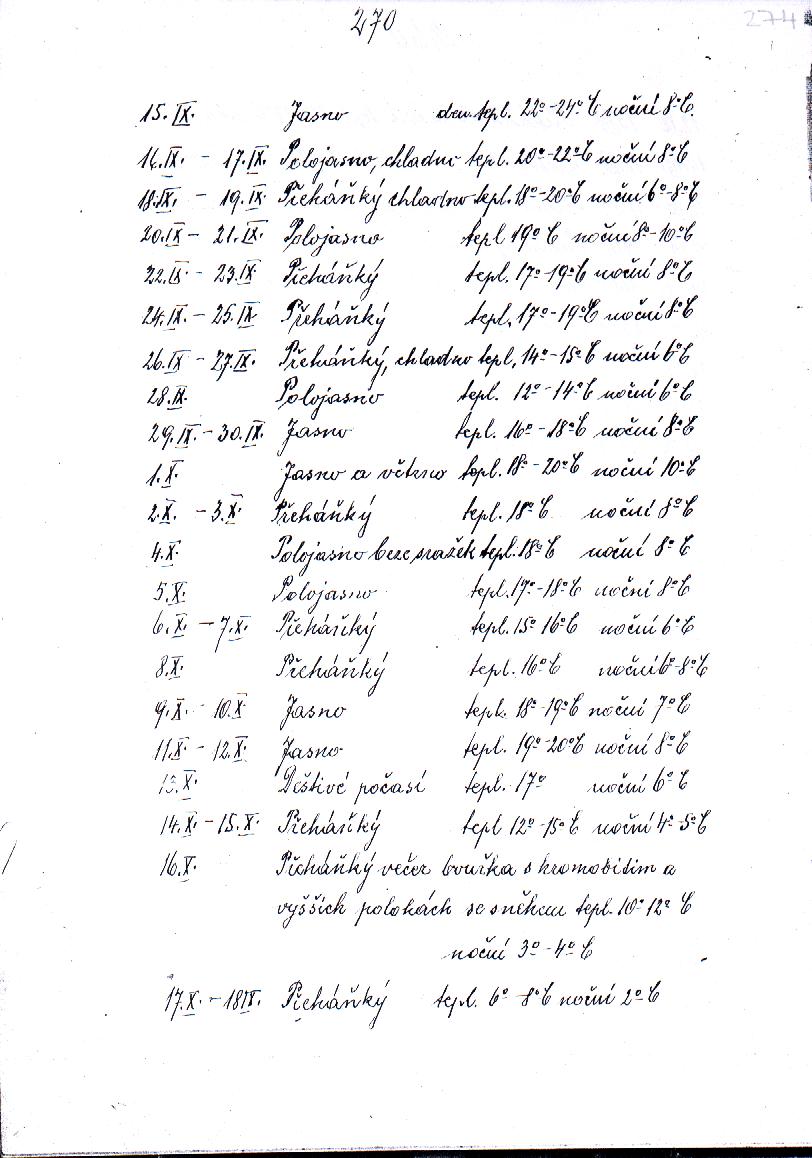 270
274
15. IX. Jasno den. tepl. 22º-24ºC noční 8ºC.
16.IX - 17.IX. Polojasno, chladno tepl. 20º-22ºC noční 8ºC
18.IX. - 19.IX Přeháňky chladno tepl. 18º-20ºC noční 6º-8ºC
20.IX - 21.IX. Polojasno tepl 19ºC noční 8º-10ºC
22.IX - 23.IX. Přeháňky tepl. 17º-19ºC noční 8ºC
24.IX. - 25.IX Přeháňky tepl. 17º-19ºC noční 8ºC
26.IX - 27.IX. Přeháňky, chladno tepl. 14º-15ºC noční 6ºC
28.IX. Polojasno tepl. 12º-14ºC noční 6ºC
29.IX. - 30.IX. Jasno tepl. 16º-18ºC noční 8ºC
1.X. Jasno a větrno tepl. 18º-20ºC noční 10ºC
2.X. - 3.X. Přeháňky tepl. 18ºC noční 8ºC
4.X. Polojasno beze srážek tepl. 18ºC noční 8ºC
5.X. Polojasno tepl. 17º-18ºC noční 8ºC
6.X. - 7.X. Přeháňky tepl. 15º 16ºC noční 6ºC
8.X. Přeháňky tepl. 16ºC noční 6º-8ºC
9.X. - 10.X Jasno tepl. 18º-19ºC noční 7ºC
11.X - 12.X. Jasno tepl. 19º-20ºC noční 8ºC
13.X. Deštivé počasí tepl. 17º noční 6ºC
14.X - 15.X. Přeháňky tepl 12º-15ºC noční 4º-5ºC
16.X. Přeháňky večer bouřka s hromobitím a
vyšších polohách se sněhem tepl. 10º 12ºC
noční 3º-4ºC
17.X. - 18IX. Přeháňky tepl. 6º-8ºC noční 2ºC